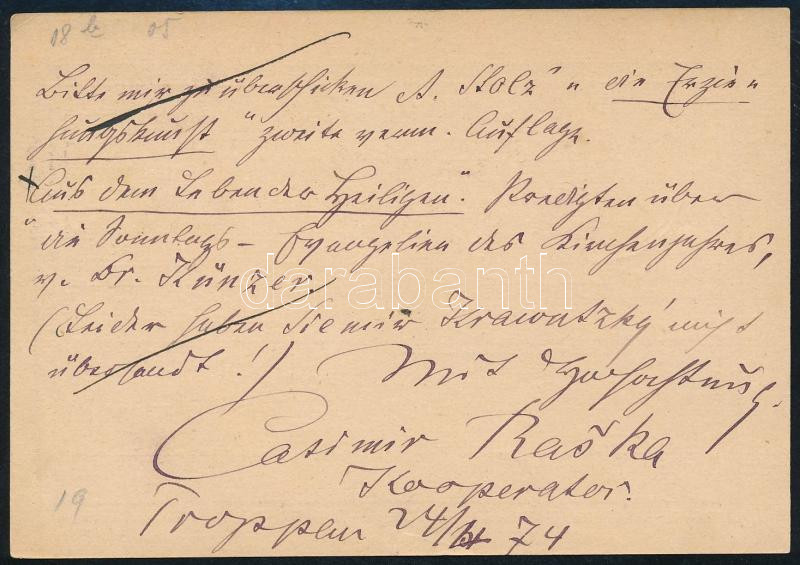 18 b 05
Bitte mir zu überschicken A. Stolz " die Erzie-
hungskunst " zweite verm. Auflage.
Aus dem Leben der Heiligen ". Predigten über
die Sonntags - Evangelien des Kirchenjahres,
v. Dr. Künzer.
darabanth
(Leider haben Sie mir Krawutzký nicht
übersandt !) Mit Hochachtung
Casimir Raška
Kooperator.
19
Troppau 24/ 74